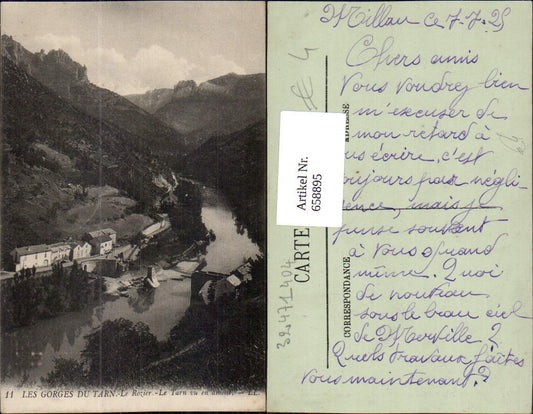 11 LES GORGES DU TARN. - Le Rozier - Le Tarn vu en amont. - LL.
Artikel Nr.
658895
€ 4
ADRESSE
CARTE
CORRESPONDANCE
32471404
Millau ce 7-7-25
Chers amis
Vous voudrez bien
m'excuser de
mon retard à
us écrire, c'est
oujours par négli
ence, mais je
pense souvent
à vous quand
même. Quoi
de nouveau
sous le beau ciel
de Morville ?
Quels travaux faites
vous maintenant ?